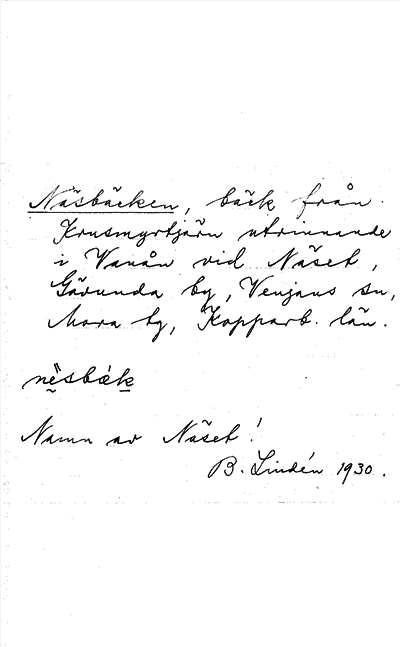 Näsbäcken, bäck från
Krusmyrtjärn utrinnande
i Vanån vid Näset,
Gävunda by, Venjans sn,
Mora tg, Kopparb. län.
nè̤sbäk̲
Namn av Näset!
B. Lindén 1930.